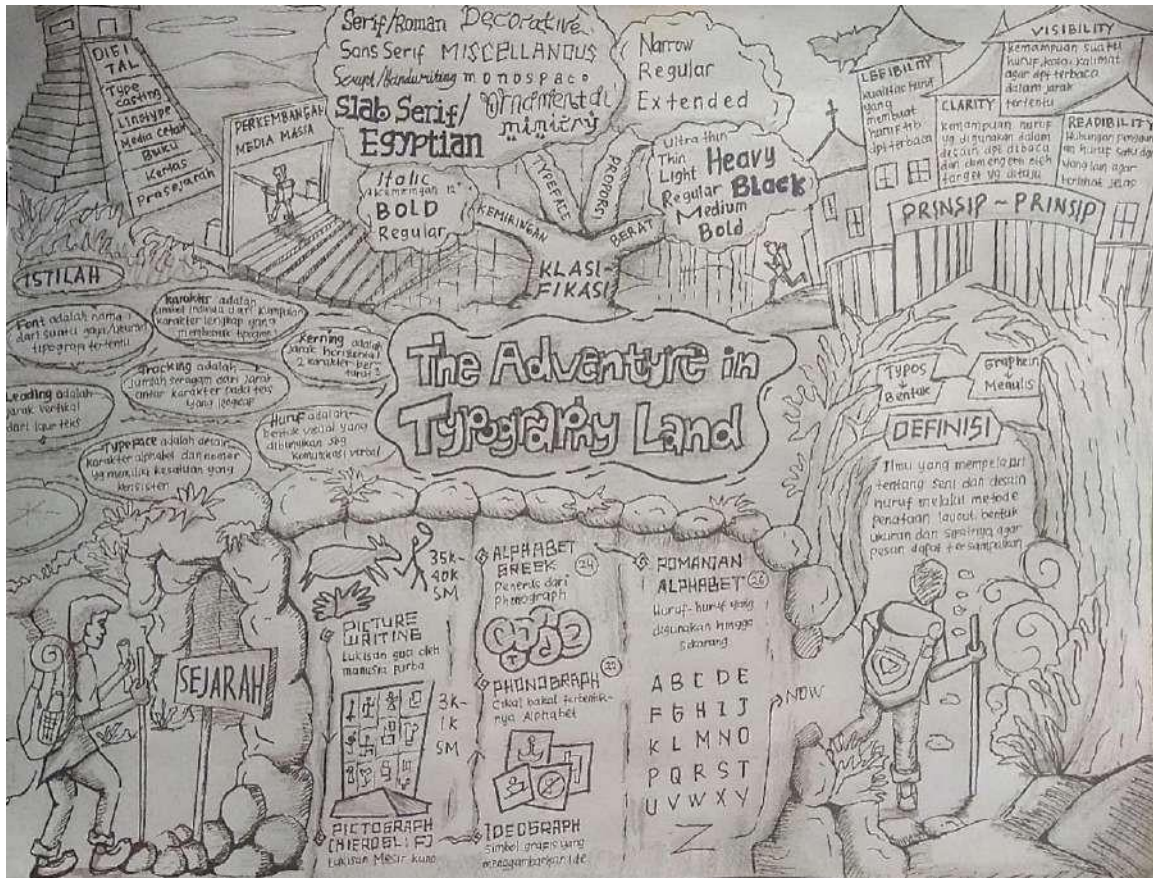 DIGI
TAL
Type
casting
Linotype
Media cetak
Buku
Kertas
Prasejarah
PERKEMBANGAN
MEDIA MASSA
Serif/Roman Decorative
Sans Serif MISCELLANOUS
Script/Handwriting monospace
Slab Serif/
Egyptian
Ornamental
mimicry
Narrow
Regular
Extended
Italic
kemiringan 12°
BOLD
Regular
Ultra thin
Thin
Light Heavy
Regular Black
Medium
Bold
KEMIRINGAN
TYPEFACE
PROPORSI
BERAT
KLASI-
FIKASI
LEGIBILITY
kualitas huruf
yang
membuat
huruf tsb
dpt terbaca
VISIBILITY
kemampuan suatu
huruf, kata, kalimat
agar dpt terbaca
dalam jarak
tertentu
CLARITY
kemampuan huruf
yg digunakan dalam
desain dpt dibaca
dan dimengerti oleh
target yg dituju
READIBILITY
Hubungan
huruf satu dgn
yang lain agar
terlihat jelas
PRINSIP ~ PRINSIP
ISTILAH
Font adalah nama
dari suatu gaya/ukuran
tipografi tertentu
Karakter adalah
simbol individu dari kumpulan
karakter lengkap yang
membentuk
Kerning adalah
jarak horizontal
2 karakter ber-
Tracking adalah
Jumlah seragam dari jarak
antar karakter pada teks
yang lengkap
Leading adalah
jarak vertikal
dari teks
Huruf adalah
bentuk visual yang
dibunyikan sbg
komunikasi verbal
Typeface adalah desain
karakter alphabet dan nomer
yg memiliki kesatuan yang
konsisten
The Adventure in
Typography Land
TYPOS
Bentuk
Graphein
Menulis
DEFINISI
Ilmu yang mempelajari
tentang seni dan desain
huruf melalui metode
penataan layout, bentuk
ukuran dan sifatnya agar
pesan dapat tersampaikan
SEJARAH
35k-
40k
SM
PICTURE
WRITING
Lukisan gua oleh
manusia purba
3k-
1k
SM
PICTOGRAPH
(HIEROGLIF)
Lukisan Mesir kuno
ALPHABET
GREEK 24
Penerus dari
Phonograph
PHONOGRAPH 22
Cikal bakal terbentuk-
nya Alphabet
IDEOGRAPH
Simbol grafis yang
menggambarkan Ide
ROMANIAN
ALPHABET 26
Huruf-huruf yang
digunakan hingga
sekarang
A B C D E
F G H I J
K L M N O
P Q R S T
U V W X Y
Z
NOW